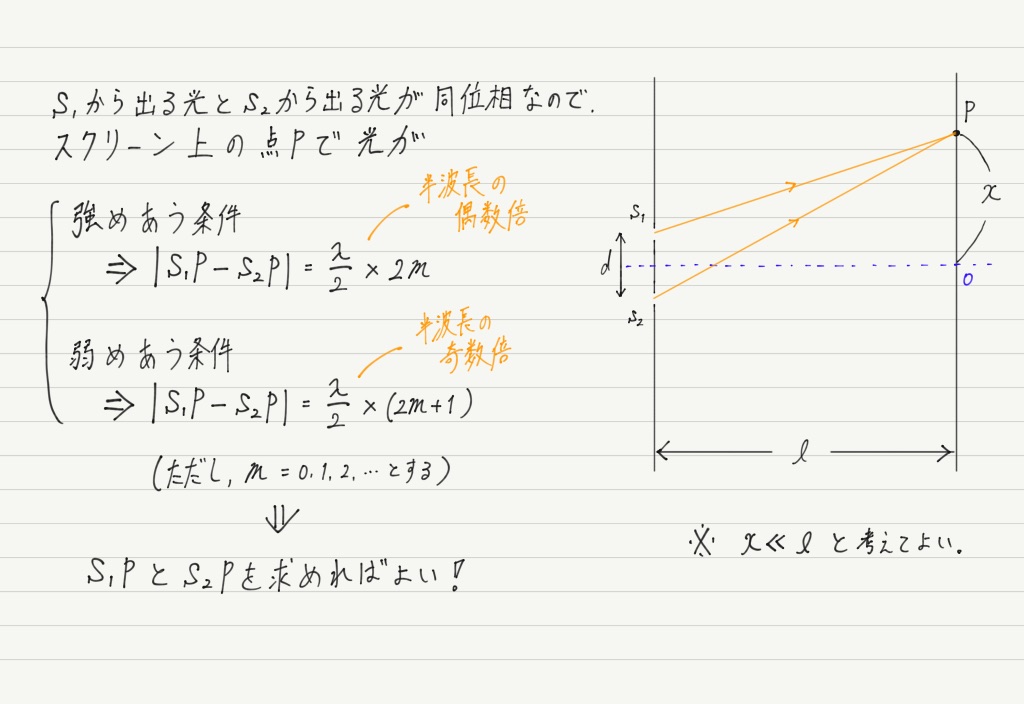 S₁から出る光とS₂から出る光が同位相なので.
スクリーン上の点Pで光が
強めあう条件
⇒ |S₁P − S₂P| = λ/2 × 2m
半波長の
偶数倍
弱めあう条件
⇒ |S₁P − S₂P| = λ/2 × (2m+1)
半波長の
奇数倍
(ただし, m = 0, 1, 2, … とする)
⇓
S₁PとS₂Pを求めればよい!
P
x
S₁
d
O
S₂
l
※ x ≪ l と考えてよい。